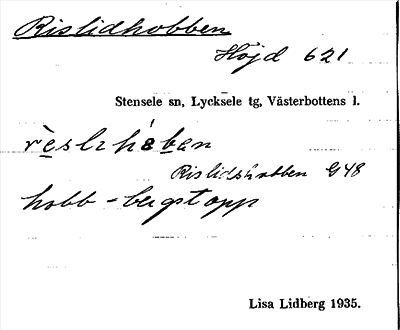 Rislidhobben
Höjd 621
Stensele sn, Lycksele tg, Västerbottens l.
Rislidshobben G48
hobb - bergstopp
Lisa Lidberg 1935.